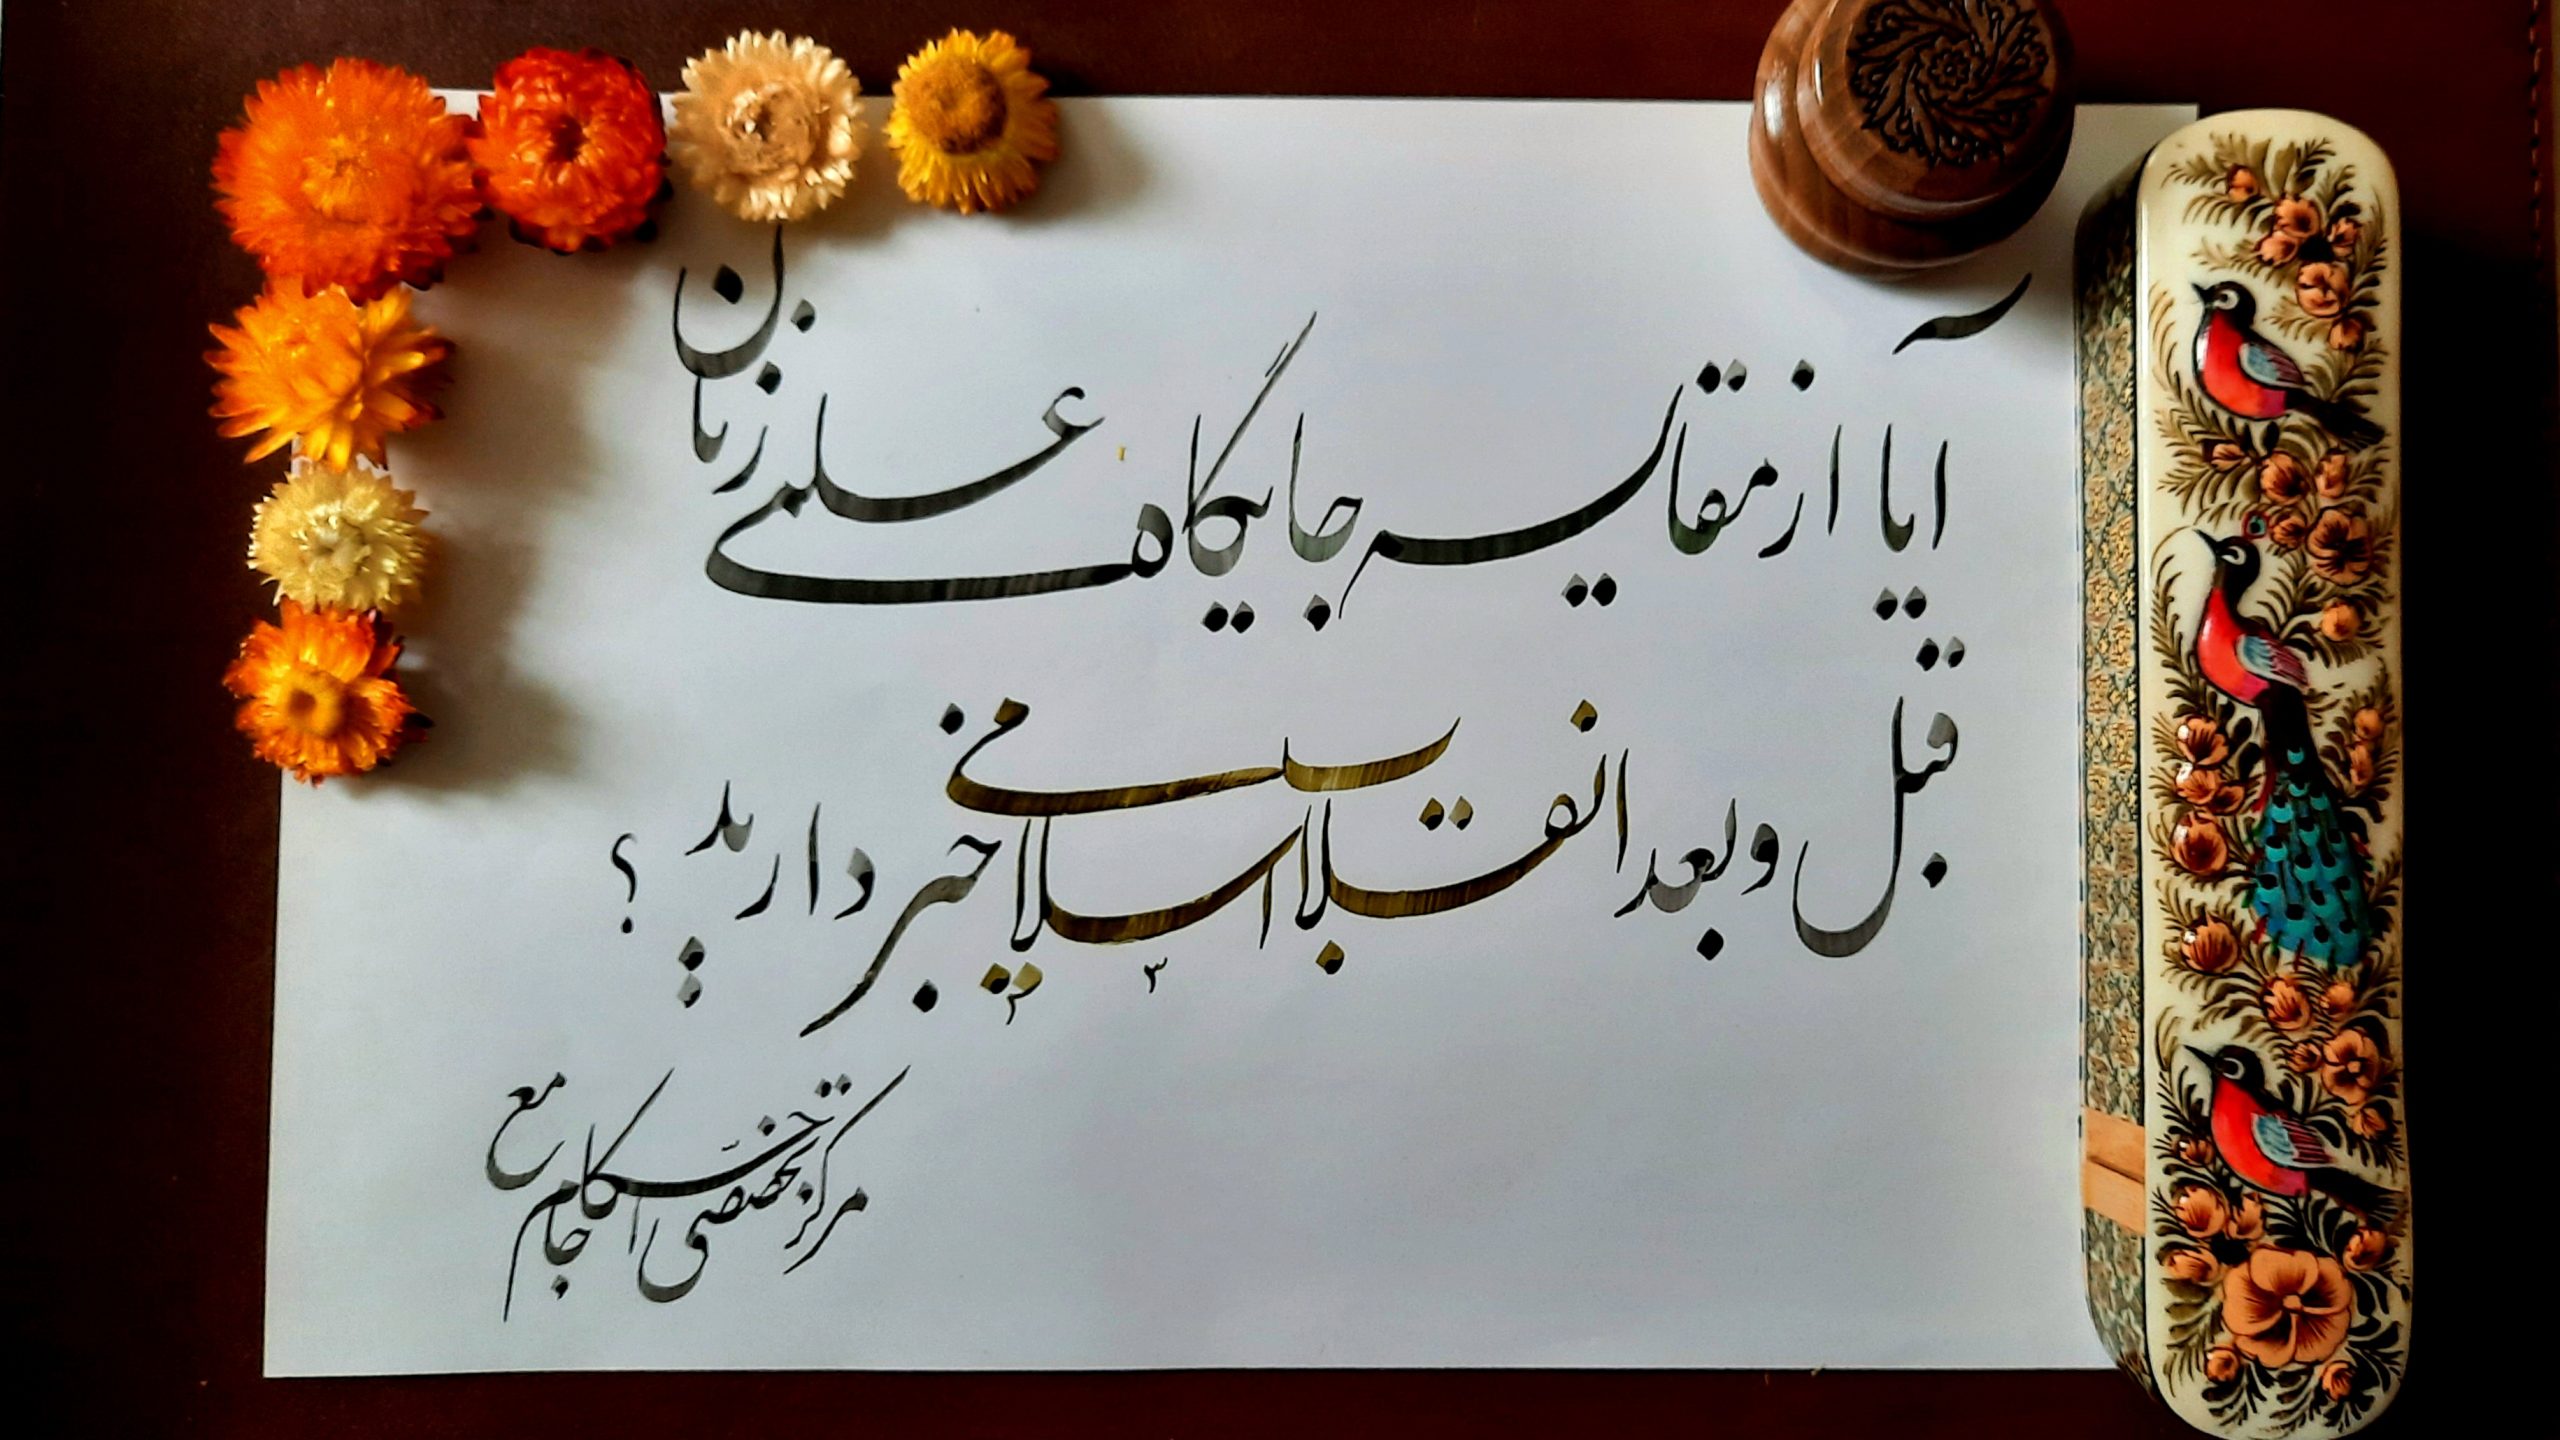 آیا از مقایسه جایگاه علمی زنان
قبل و بعد انقلاب اسلامی خبر دارید ؟
مرکز تخصصی احکام جامع